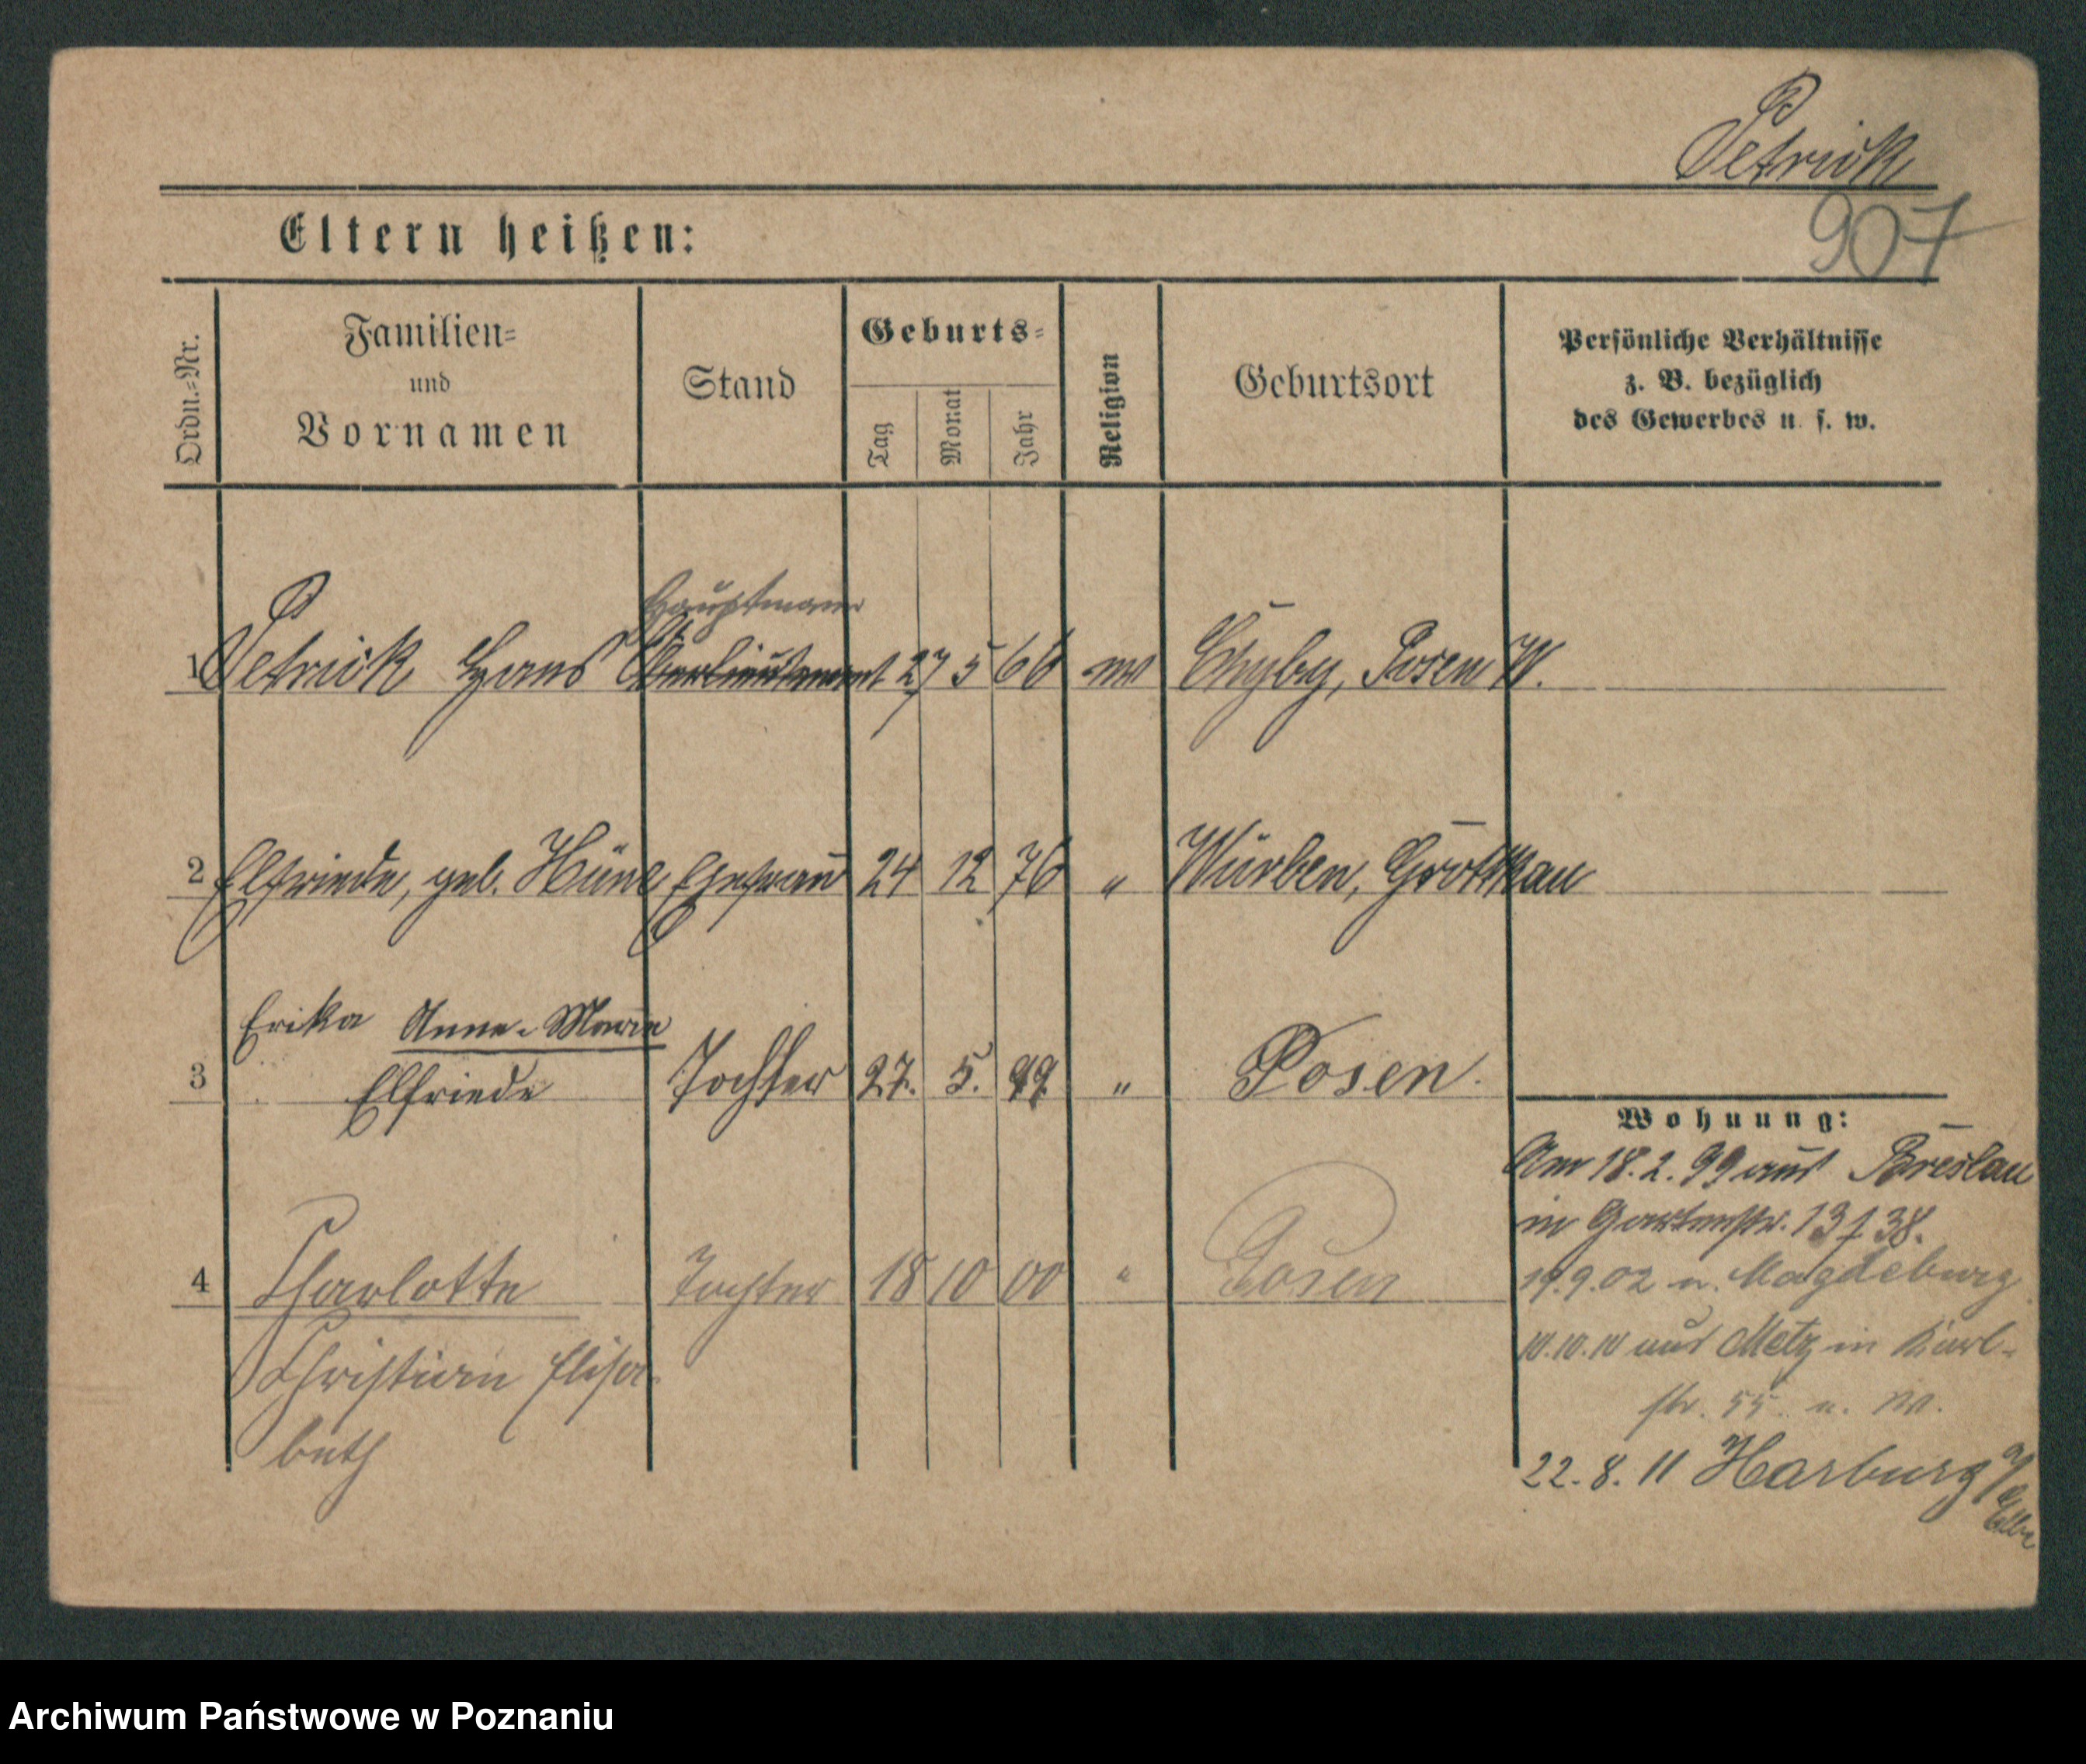 Petrick
907
Eltern heißen:
Ordn.-Nr.
Familien-
und
Vornamen
Stand
Geburts-
Tag
Monat
Jahr
Religion
Geburtsort
Persönliche Verhältnisse
z. B. bezüglich
des Gewerbes u. s. w.
Hauptmann
1 Petrick Hans Oberlieutenant 27 5 66 ev Chyby, Posen W.
2 Elfriede, geb. Ehefrau 24 12 76 " Würben, Grottkau
Erika Anne-Marie
3 Elfriede Tochter 27. 5. 99 " Posen.
Wohnung:
Am 18.2.99 aus Breslau
in Gartenstr. 13 f 38.
19.9.02 n. Magdeburg
4 Charlotte Tochter 18 10 00 " Posen
10.10.10 aus Metz in Karl-
Christiern Elisa-
str. 55 u. W.
beth
22.8.11 Harburg a/
Elbe
Archiwum Państwowe w Poznaniu